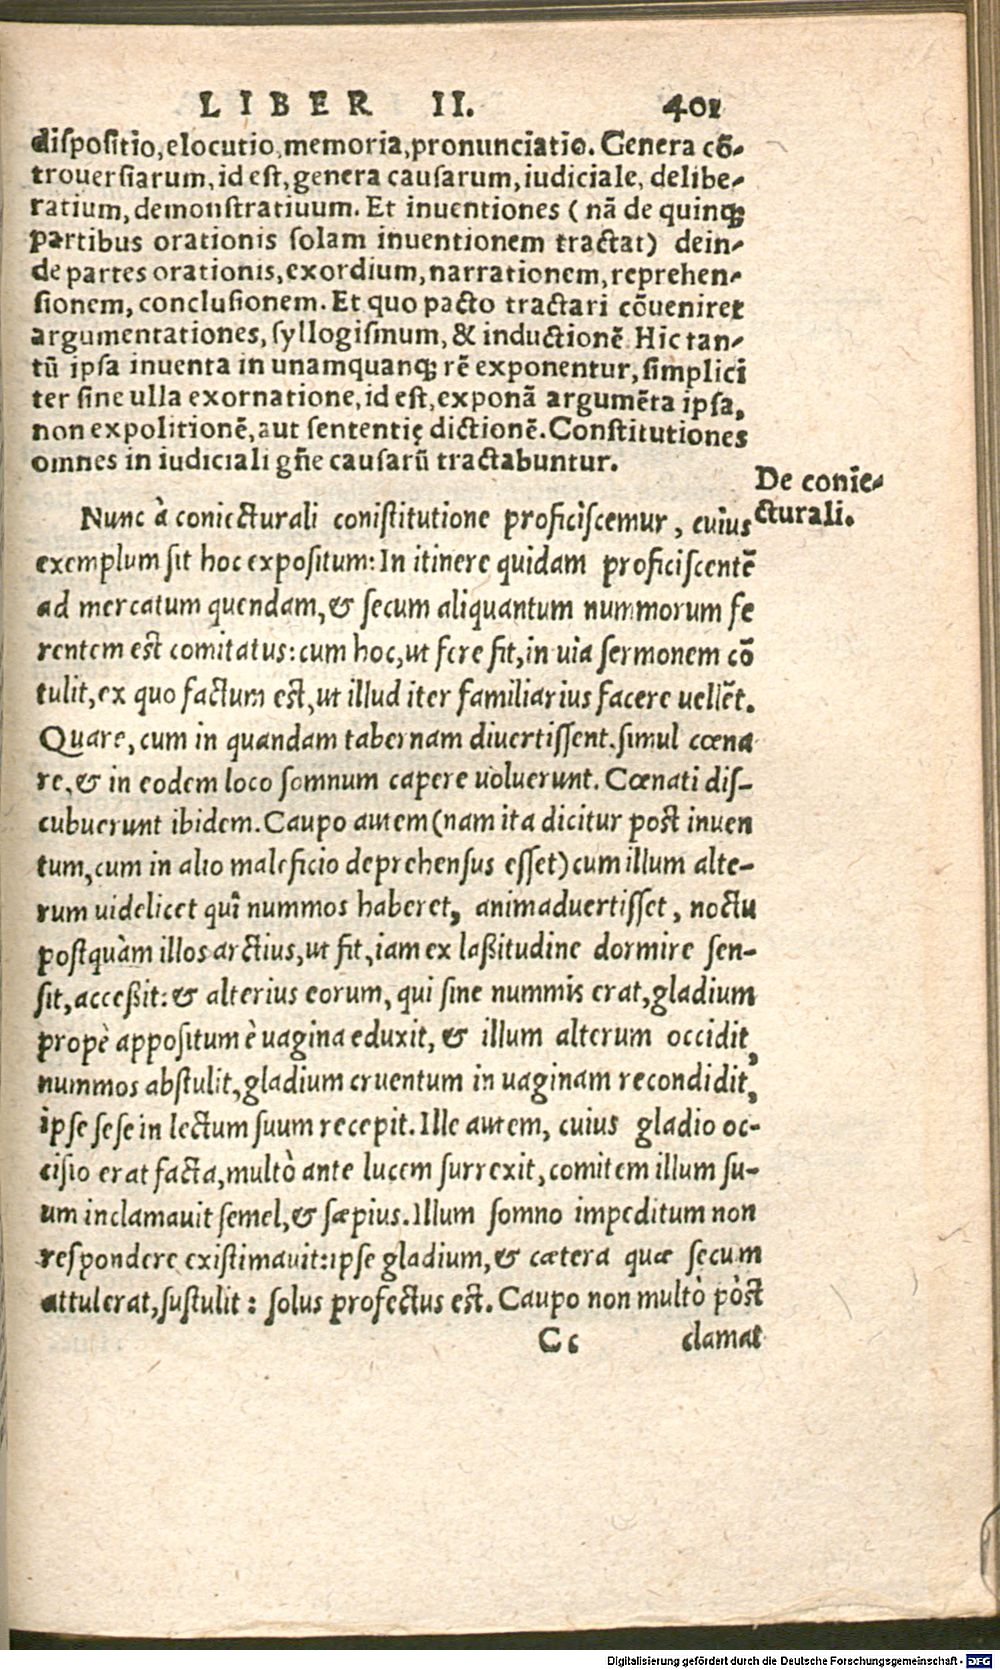 LIBER II. 401
dispositio, elocutio, memoria, pronunciatio. Genera cõ-
trouersiarum, id est, genera causarum, iudiciale, delibe-
ratium, demonstratiuum. Et inuentiones ( nã de quinq;
partibus orationis solam inuentionem tractat) dein-
de partes orationis, exordium, narrationem, reprehen-
sionem, conclusionem. Et quo pacto tractari cõueniret
argumentationes, syllogismum, & inductionẽ Hic tan-
tũ ipsa inuenta in unamquanq; rẽ exponentur, simplici
ter sine ulla exornatione, id est, exponã argumẽta ipsa,
non expolitionẽ, aut sententię dictionẽ. Constitutiones
omnes in iudiciali gñe causarũ tractabuntur.
De conie-
cturali.
Nunc à coniecturali conistitutione proficiscemur, cuius
exemplum sit hoc expositum: In itinere quidam proficiscentẽ
ad mercatum quendam, & secum aliquantum nummorum fe
rentem est comitatus: cum hoc, ut fere fit, in uia sermonem cõ
tulit, ex quo factum est, ut illud iter familiarius facere uellẽt.
Quare, cum in quandam tabernam diuertissent. simul cœna
re, & in eodem loco somnum capere uoluerunt. Cœnati dis-
cubuerunt ibidem. Caupo autem (nam ita dicitur post inuen
tum, cum in alio maleficio deprehensus esset) cum illum alte-
rum uidelicet quî nummos haberet, animaduertisset, noctu
postquàm illos arctius, ut fit, iam ex laßitudine dormire sen-
sit, acceßit: & alterius eorum, qui sine nummis erat, gladium
propè appositum è uagina eduxit, & illum alterum occidit,
nummos abstulit, gladium cruentum in uaginam recondidit,
ipse sese in lectum suum recepit. Ille autem, cuius gladio oc-
cisio erat facta, multò ante lucem surrexit, comitem illum su-
um inclamauit semel, & sæpius. Illum somno impeditum non
respondere existimauit: ipse gladium, & cætera quæ secum
attulerat, sustulit: solus profectus est. Caupo non multò pòst
Cc clamat
Digitalisierung gefördert durch die Deutsche Forschungsgemeinschaft - DFG